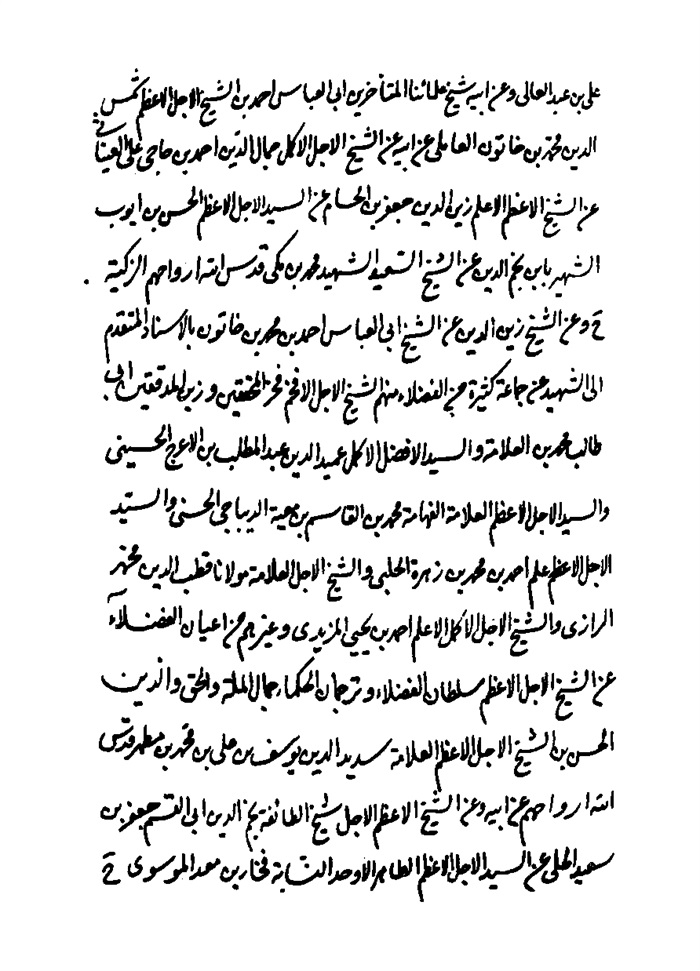 علي بن عبد العالى وعن ابيه شيخ علمائنا المتأخرين ابى العباس احمد بن الشيخ الاجل الاعظم شمس
الدين محمد بن خاتون العاملى عن ابيه عن الشيخ الاجل الاكمل جمال الدين احمد بن حاجى على العيناثى
عن الشيخ الاعظم الاعلم زين الدين جعفر بن الحسام عن السيد الاجل الاعظم الحسن بن ايوب
الشهير بابن نجم الدين عن الشيخ السعيد الشهيد محمد بن مكى قدس الله ارواحهم الزكية .
ح وعن الشيخ زين الدين عن الشيخ ابى العباس احمد بن محمد بن خاتون بالاسناد المتقدم
الى الشهيد عن جماعة كثيرة من الفضلاء منهم الشيخ الاجل الافخم فخر المحققين وزين المدققين ابى
طالب محمد بن العلامة والسيد الافضل الاكمل عميد الدين عبد المطلب بن الاعرج الحسينى
والسيد الاجل الاعظم العلامة الفهامة محمد بن القاسم بن معية الديباجى الحسنى والسيد
الاجل الاعظم علم احمد بن محمد بن زهرة الحلبى والشيخ الاجل العلامة مولانا قطب الدين محمد
الرازى والشيخ الاجل الاكمل الاعلم احمد بن يحيى المزيدى وغيرهم من اعيان الفضلاء
عن الشيخ الاجل الاعظم سلطان الفضلاء وترجمان الحكماء جمال الملة والحق والدين
الحسن بن الشيخ الاجل الاعظم العلامة سديد الدين يوسف بن على بن محمد بن مطهر قدس
الله ارواحهم عن ابيه وعن الشيخ الاعظم الاجل شيخ الطائفة نجم الدين ابى القسم جعفر بن
سعيد الحلى عن السيد الاجل الاعظم الطاهر الاوحد النسابة فخار بن معد الموسوى ح